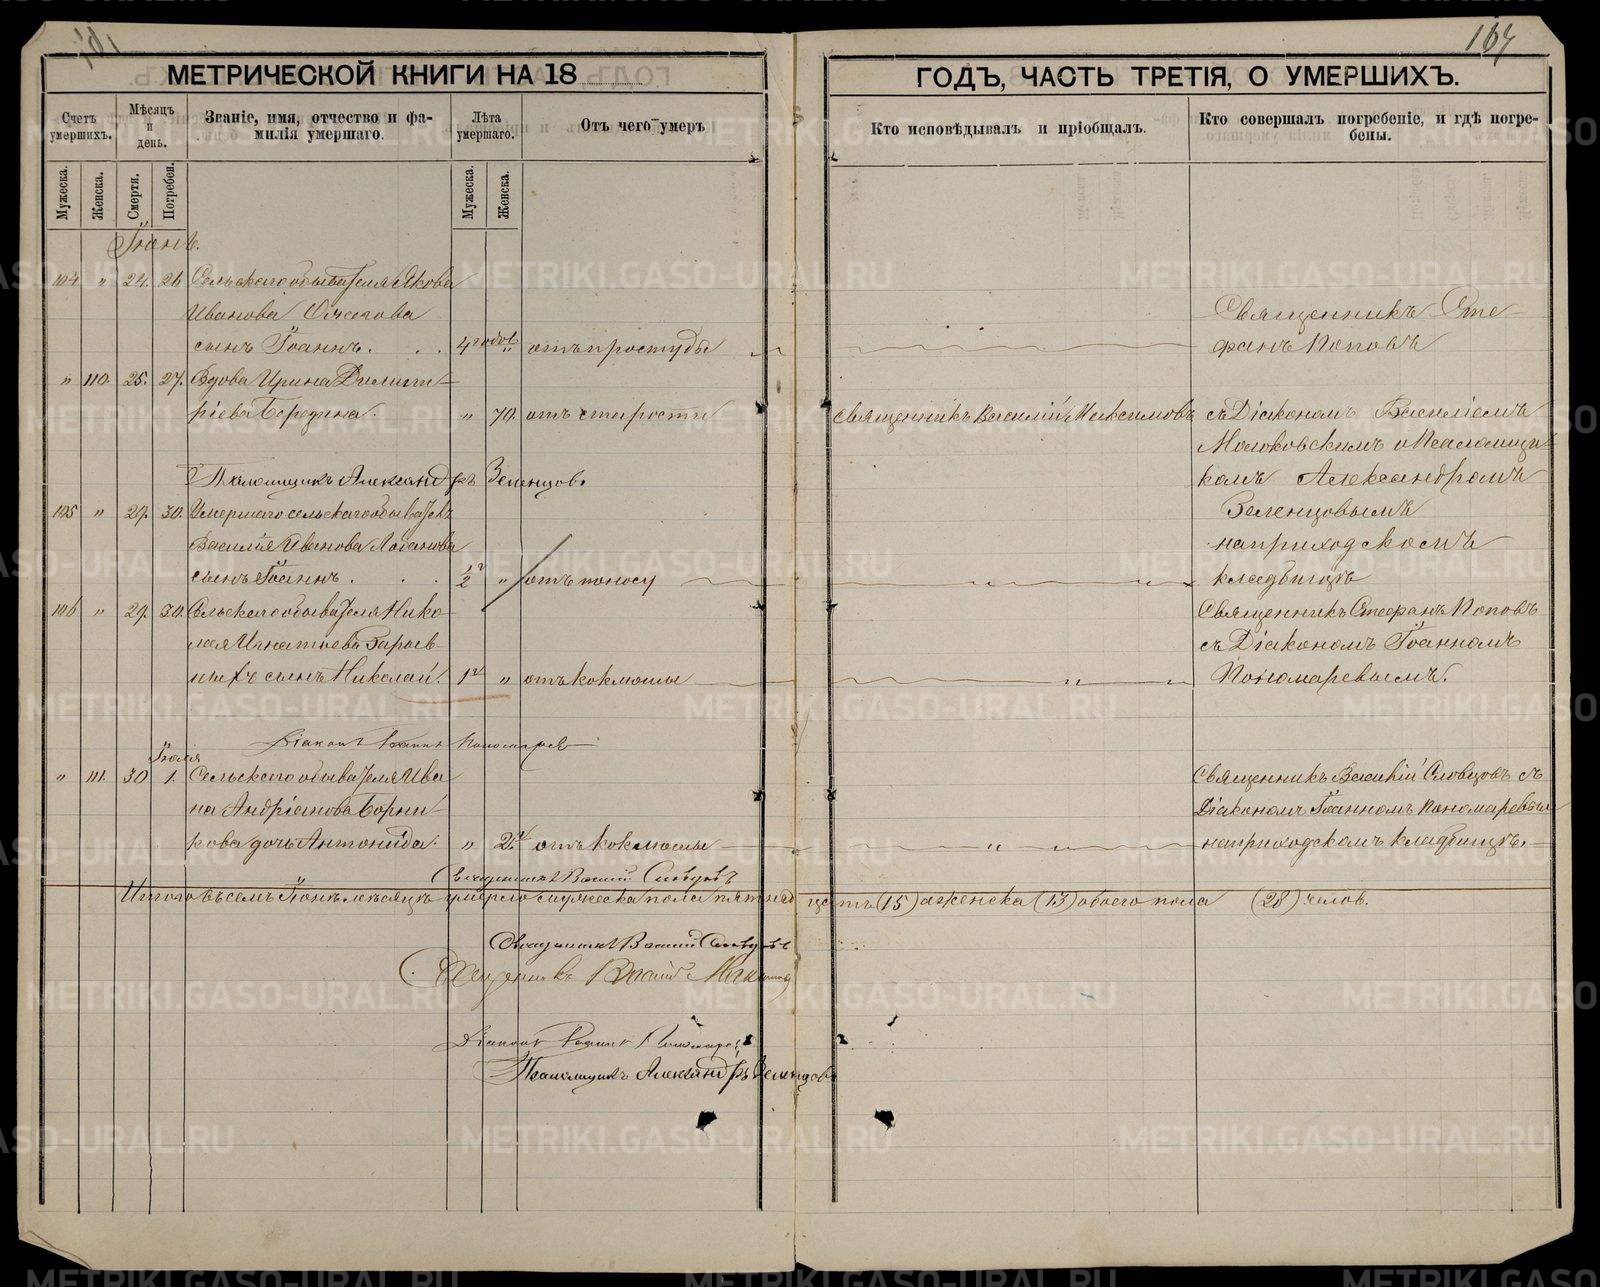 164
МЕТРИЧЕСКОЙ КНИГИ НА 18
ГОДЪ, ЧАСТЬ ТРЕТІЯ, О УМЕРШИХЪ.
Счетъ умершихъ.
Мѣсяцъ и день.
Званіе, имя, отчество и фамилія умершаго.
Лѣта умершаго.
Отъ чего умеръ
Кто исповѣдывалъ и пріобщалъ.
Кто совершалъ погребеніе, и гдѣ погребены.
Мужеска.
Женска.
Смерти.
Погребен.
Мужеска.
Женска.
Іюнь.
104 " 24. 26. Сельскаго обывателя Якова
Иванова
сынъ Іоаннъ. 4 годовъ " отъ простуды
Священникъ Сте-
фанъ Поповъ
" 110. 25. 27. Вдова Ирина Димит-
ріева Бородина. " 70. отъ старости Священникъ Василій Максимовъ
съ Діакономъ Василіемъ
Молоковскимъ и Псаломщи-
комъ Александромъ
Зеленцовымъ
на приходскомъ
кладбищѣ
Псаломщикъ Александръ Зеленцовъ
105 " 29. 30. Умершаго сельскаго обывателя
Василія Иванова Лобанова
сынъ Іоаннъ. 1/2 г " отъ поносу
106 " 29. 30. Сельскаго обывателя Нико-
лая Игнатьева
сынъ Николай. 1 г " отъ кокмоты
Священникъ Стефанъ Поповъ
съ Діакономъ Іоанномъ
Пономаревымъ.
Діаконъ Іоаннъ Пономаревъ
Іюля
" 111. 30 1. Сельскаго обывателя Ива
на Андріанова Борни-
кова дочь Антонида. " 2 г. отъ кокмоты
Священникъ Василій Словцовъ съ
Діакономъ Іоанномъ Пономаревым
на приходскомъ кладбищѣ.
Священникъ Василій Словцовъ
Итого въ семъ Іюнѣ мѣсяцѣ умерло мужеска пола пятнадцать (15) а женска (13) обоего пола (28) челов.
Священникъ Василій Словцовъ
Священникъ Василій Максимовъ
Діаконъ Іоаннъ Пономаревъ
Псаломщикъ Александръ Зеленцовъ
METRIKI.GASO-URAL.RU